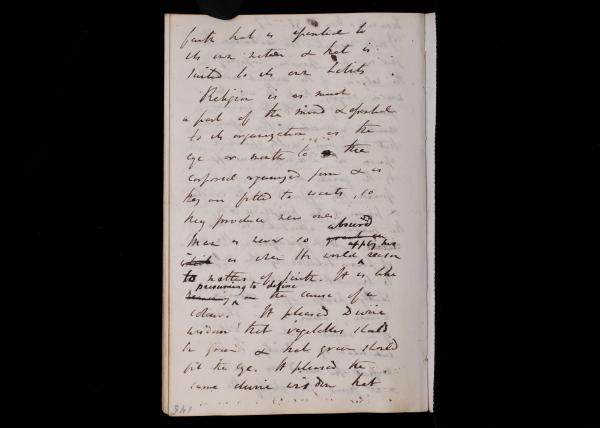 faith that is essential to
its own nature & that is
suited to its own habits
Religion is as much
a part of the mind & essential
to its organization as the
eye or mouth to the
corporeal organized form & as
they are fitted to wants, so
they produce new ones.
absurd
Man is never so
apply his
as when He would reason
to matters of faith. It is like
presuming to define
the cause of a
colour. It pleased Divine
wisdom that vegetables should
be green & that green should
fit the eye. It pleased the
same divine wisdom that